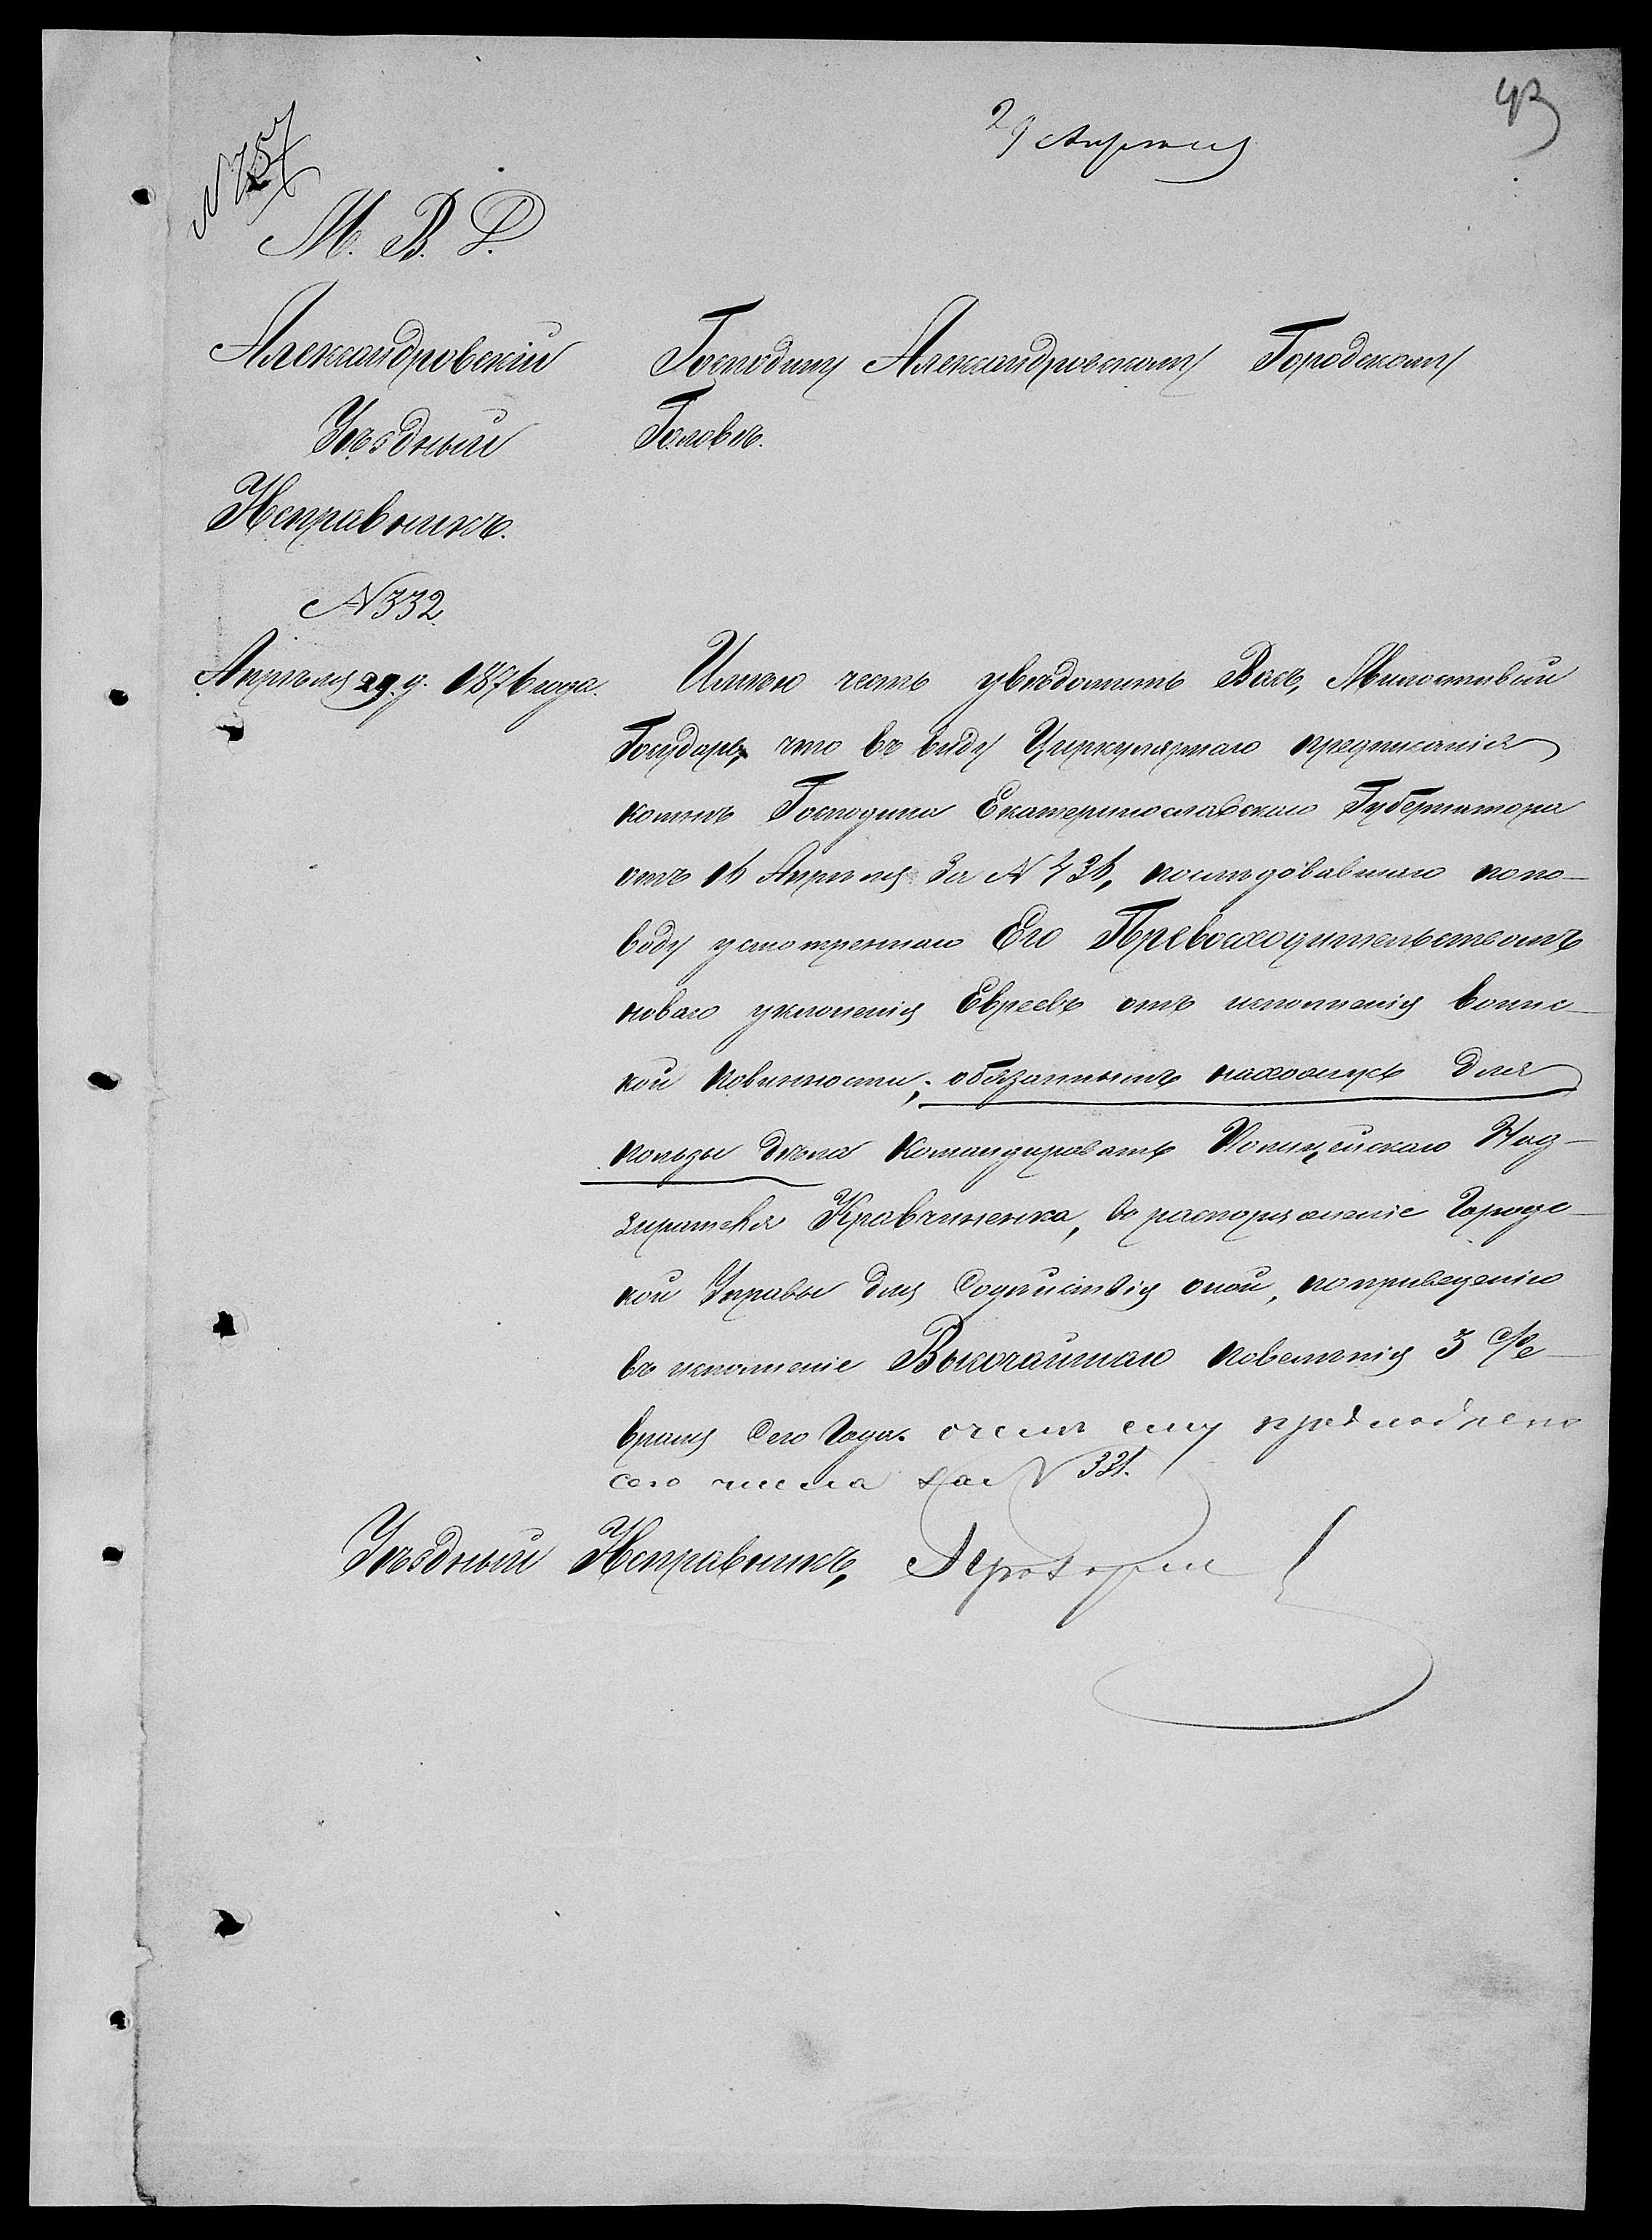 43
29 Апреля
N 757
М. В. Д.
Александровскій
Уѣздный
Исправникъ.
N 332.
Апрѣля 29 д. 1876 года.
Господину Александровскому Городскому
Головѣ.
Имѣю честь увѣдомить Васъ, Милостивый
Государь, что въ виду Циркулярнаго предписанія
ко мнѣ Господина Екатеринославскаго Губернатора
отъ 16 Апрѣля за N 436, послѣдовавшаго по по-
воду усмотреннаго Его Превосходительствомъ
новаго уклоненія Евреевъ отъ исполненія воинс-
кой повинности, обязаннымъ нахожусь для
пользы дѣла командировать Полицейскаго Над-
зирателя Кравчиненка, въ распоряженіе Городс-
кой Управы для содѣйствія оной, по приведенію
въ исполненіе Высочайшаго повелѣнія 3 Фе-
враля сего года. о чемъ ему предложено
сего числа за N 331.
Уѣздный Исправникъ,